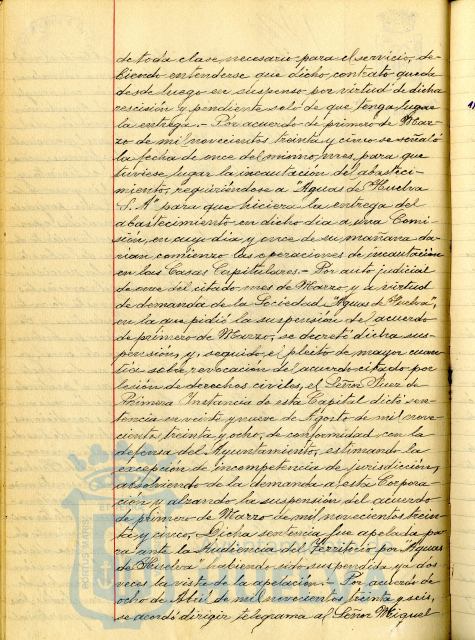 de toda clase, necesario para el servicio, de-
biendo entenderse que dicho contrato queda
desde luego en suspenso por virtud de dicha
rescisión y pendiente solo de que tenga lugar
la entrega.- Por acuerdo de primero de Mar-
zo de mil novecientos treinta y cinco se señaló
la fecha de once del mismo mes, para que
tuviese lugar la incautación del abasteci-
miento, requiriéndose a "Aguas de Huelva
S. A" para que hiciera la entrega del
abastecimiento en dicho día a una Comi-
sión, en cuyo día y once de su mañana da-
rían comienzo las operaciones de incautación
en las Casas Capitulares.- Por auto judicial
de once del citado mes de Marzo y a virtud
de demanda de la Sociedad "Aguas de Huelva",
en la que pidió la suspensión de acuerdo
de primero de Marzo, se decretó dicha sus-
pensión, y, seguido, el pleito de mayor cuan-
tía sobre revocación del acuerdo citado por
lesión de derechos civiles, el Señor Juez de
Primera Instancia de esta Capital dictó sen-
tencia en veinte y nueve de Agosto de mil nove-
cientos treinta y ocho, de conformidad con la
defensa del Ayuntamiento, estimando la
excepción de incompetencia de jurisdicción,
absolviendo de la demanda a esta Corpora-
ción y alzando la suspensión del acuerdo
de primero de Marzo de mil novecientos trein-
ta y cinco.- Dicha sentencia fue apelada pa-
ra ante la Audiencia del Territorio por "Aguas
de Huelva" habiendo sido suspendida ya dos
veces la vista de la apelación.- Por acuerdo de
ocho de Abril de mil novecientos treinta y seis,
se acordó dirigir telegrama al Señor Miguel